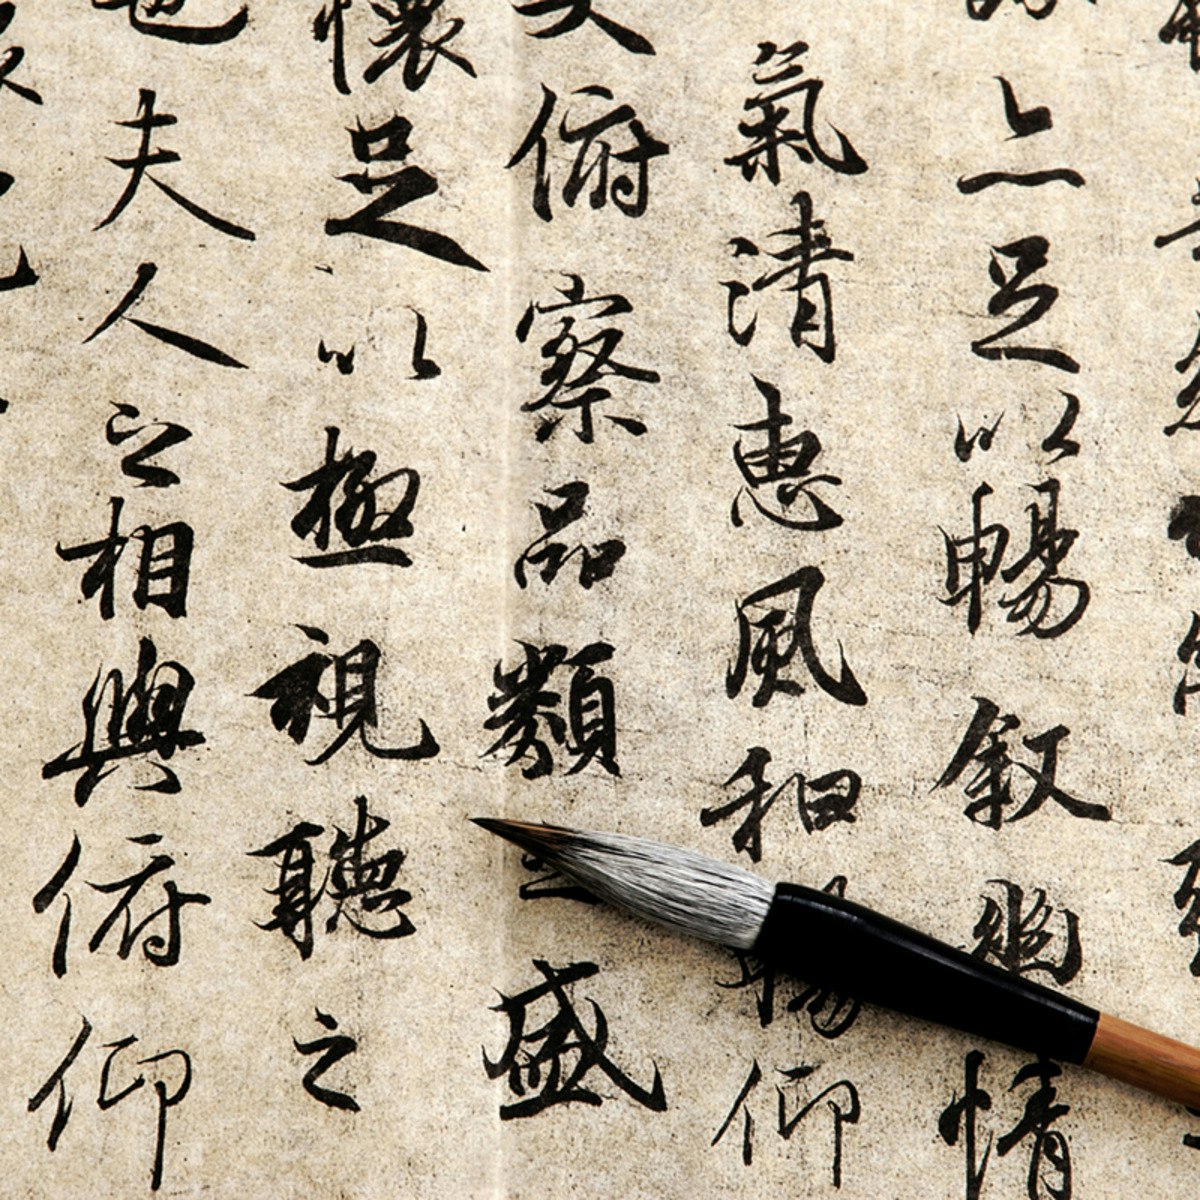 亦足以暢叙幽情
氣清惠風和暢仰
俯察品類之盛
懷足以極視聽之
也夫人之相與俯仰